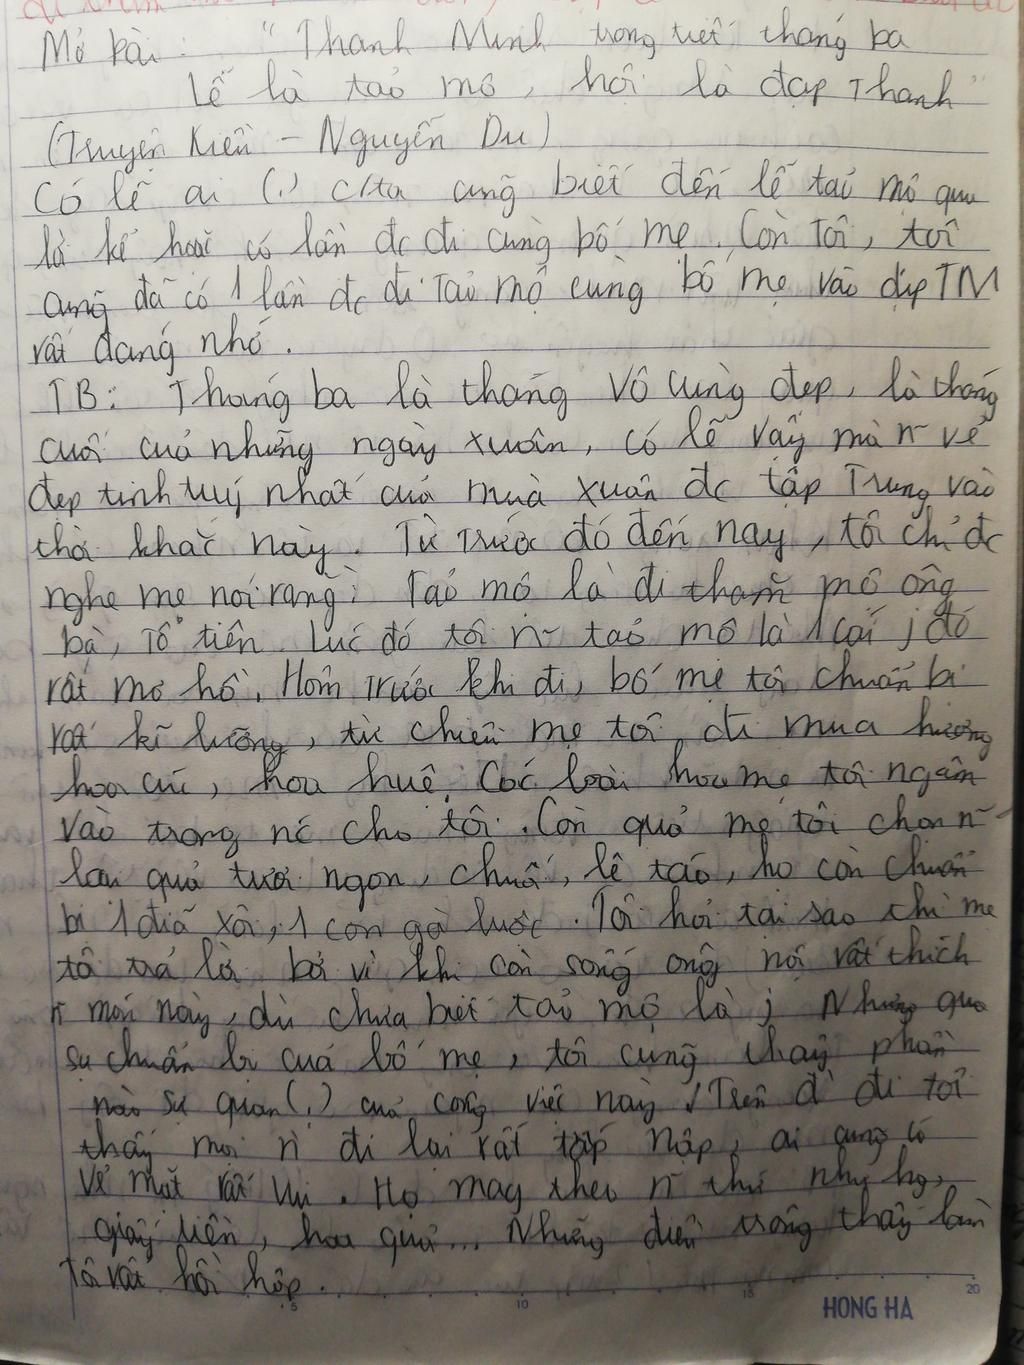 Mở bài: "Thanh Minh trong tiết tháng ba
Lễ là tảo mộ, hội là đạp Thanh"
(Truyện Kiều - Nguyễn Du)
Có lẽ ai (.) c/ta cũng biết đến lễ tảo mộ qua
lời kể hoặc có lần đc đi cùng bố mẹ. Còn Tôi, tôi
cũng đã có 1 lần đc đi Tảo mộ cùng bố mẹ vào dịp TM
rất đáng nhớ.
TB: Tháng ba là tháng vô cùng đẹp, là tháng
cuối của những ngày xuân, có lẽ vậy mà n~ vẻ
đẹp tinh tuý nhất của mùa xuân đc tập Trung vào
thời khắc này. Từ Trước đó đến nay, tôi chỉ đc
nghe mẹ nói rằng: Tảo mộ là đi thăm mộ ông
bà, Tổ tiên. Lúc đó tôi n~ tảo mộ là 1 cái j đó
rất mơ hồ. Hôm trước khi đi, bố mẹ tôi chuẩn bị
rất kĩ lưỡng, từ chiều mẹ tôi đi mua hương
hoa cúc, hoa huệ. Các loài hoa mẹ tôi ngâm
vào trong nc cho tôi. Còn quả mẹ tôi chọn n~
loại quả tươi ngon, chuối, lê táo, họ còn chuẩn
bị 1 đĩa xôi, 1 con gà luộc. Tôi hỏi tại sao thì mẹ
tôi trả lời bởi vì khi còn sống ông nội rất thích
n~ món này, dù chưa biết tảo mộ là j Nhưng qua
sự chuẩn bị của bố mẹ, tôi cũng thấy phần
nào sự quan (.) của công việc này √ Trên đ` đi tôi
thấy mọi n` đi lại rất tấp nập, ai cũng có
vẻ mặt rất vui. Họ mang theo n~ thứ như hg,
giấy tiền, hoa quả... Những điều trông thấy làm
Tôi rất hồi hộp.
HONG HA
5 10 15 20